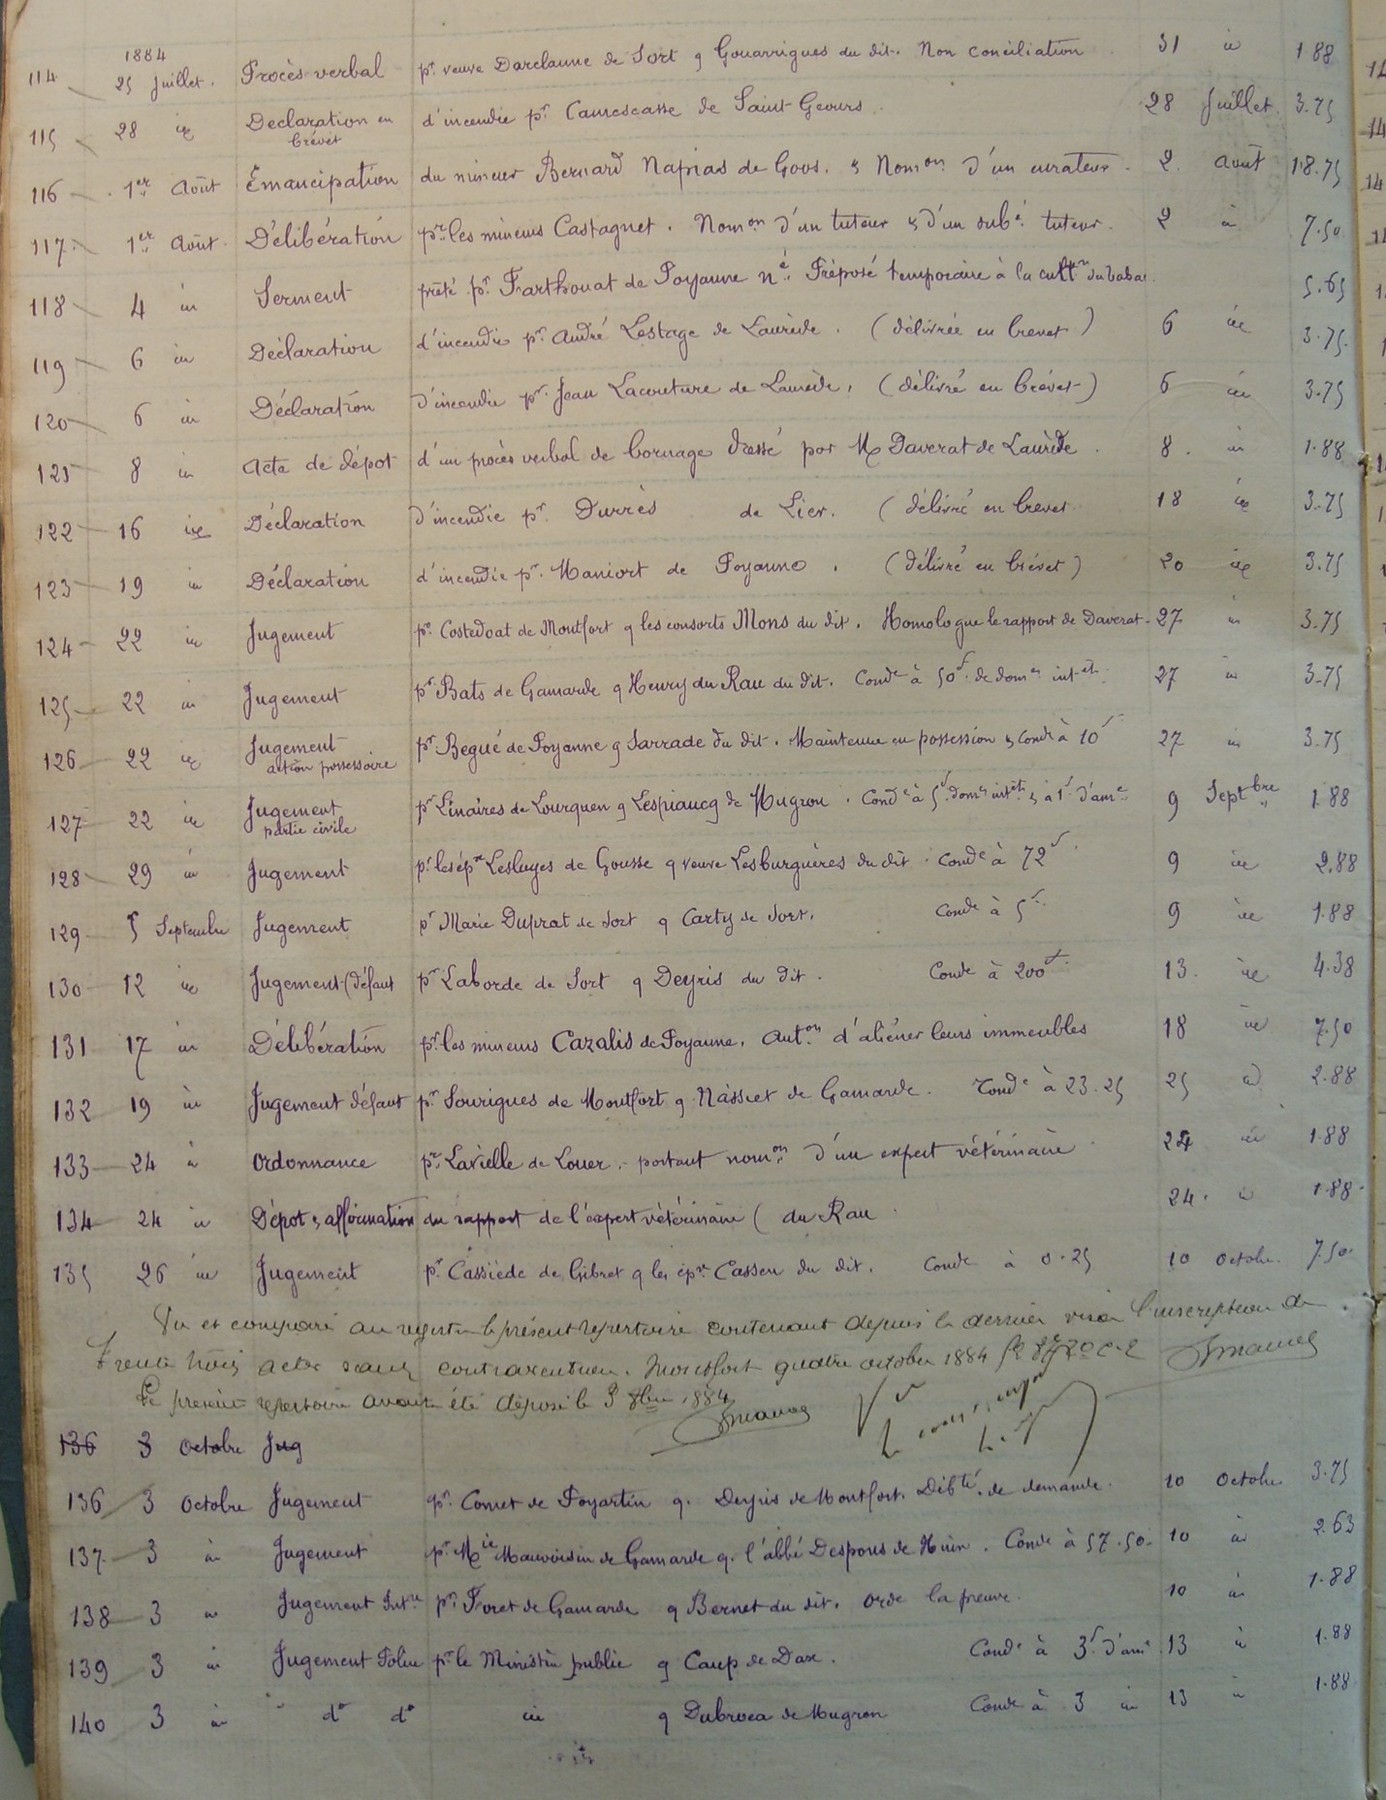 1884
114 25 Juillet. Procès verbal pr. veuve Darclanne de Sort q Gouarrigues du dit. Non conciliation 31 id 1.88
115 28 id Declaration en d'incendie pr. Camescasse de Saint-Geours. 28 Juillet 3.75
brévet
116 1er Août Emancipation du mineur Bernard Napias de Goos. & Nomon d'un curateur. 2 Août 18.75
117 1er Août Délibération pr. les mineurs Castagnet. Nomon d'un tuteur & d'un subé tuteur. 2 id 7.50
118 4 id Serment prêté pr. Farthouat de Poyanne Préposé temporaire à la 5.65
119 6 id Déclaration d'incendie pr. André Lestage de Laurède. (délivrée en brevet) 6 id 3.75
120 6 id Déclaration d'incendie pr. Jean Lacouture de Laurède. (délivré en brévet) 6 id 3.75
121 8 id Acte de dépot d'un procès verbal de bornage dressé par M Daverat de Laurède. 8 id 1.88
122 16 id Déclaration d'incendie pr. Durrès de Lier. (délivré en brevet 18 id 3.75
123 19 id Déclaration d'incendie pr. Maniort de Poyanne. (délivré en brévet) 20 id 3.75
124 22 id Jugement pr. Costedoat de Montfort q les consorts Mons du dit. Homologue le rapport de Daverat 27 id 3.75
125 22 id Jugement pr Bats de Gamarde q Henry du Rau du dit. Conde à 50f. de dom intêts 27 id 3.75
126 22 id Jugement pr Begué de Poyanne q Sarrade du dit. Maintenue en possession & conde à 10f 27 id 3.75
action possessoire
127 22 id Jugement pr Linaires de Lourquen q Lespiaucq de Mugron. Conde à 5f. dom intêts & à 1f. d'ame 9 Septbre 1.88
partie civile
128 29 id Jugement pr les épx Lesluyes de Gousse q veuve Lesburguères du dit. Conde à 72f 9 id 2.88
129 5 Septembre Jugement pr Marie Duprat de Sort q Carty de Sort. Conde à 5f 9 id 1.88
130 12 id Jugement (défaut pr Laborde de Sort q Deyris du dit. Conde à 200f. 13 id 4.38
131 17 id Délibération pr. les mineurs Cazalis de Poyanne. Auton d'aliéner leurs immeubles 18 id 7.50
132 19 id Jugement défaut pr Sourigues de Montfort q Nàssiet de Gamarde. Conde à 23.25 25 id 2.88
133 24 id Ordonnance pr. Lavielle de Louer, portant nomon d'un expert vétérinaire 24 id 1.88
134 24 id Dépot & affirmation du rapport de l'expert vétérinaire (du Rau 24 id 1.88
135 26 id Jugement pr. Cassiède de Gibret q les épx Cassen du dit. Conde à 0.25 10 Octobre 7.50
Vu et comparé au registre le présent repertoire contenant depuis le dernier visa l'inscription de
trente trois actes sans contravention. Montfort quatre octobre 1884
Le présent repertoire avait été déposé le 3 8bre 1884
136 3 Octobre Jug
136 3 Octobre Jugement pr. Comet de Poyartin q. Deyris de Montfort. Débté de demande. 10 Octobre 3.75
137 3 id Jugement pr Mie Mauvoisin de Gamarde q. l'abbé Despons de Hinx. Conde à 57.50 10 id 2.63
138 3 id Jugement Intre pr. Foret de Gamarde q Bernet du dit. Orde la preuve. 10 id 1.88
139 3 id Jugement Police pr le Ministère public q Caup de Dax. Conde à 3f. d'ame 13 id 1.88
140 3 id do do id q Dubroca de Mugron Conde à 3 id 13 id 1.88